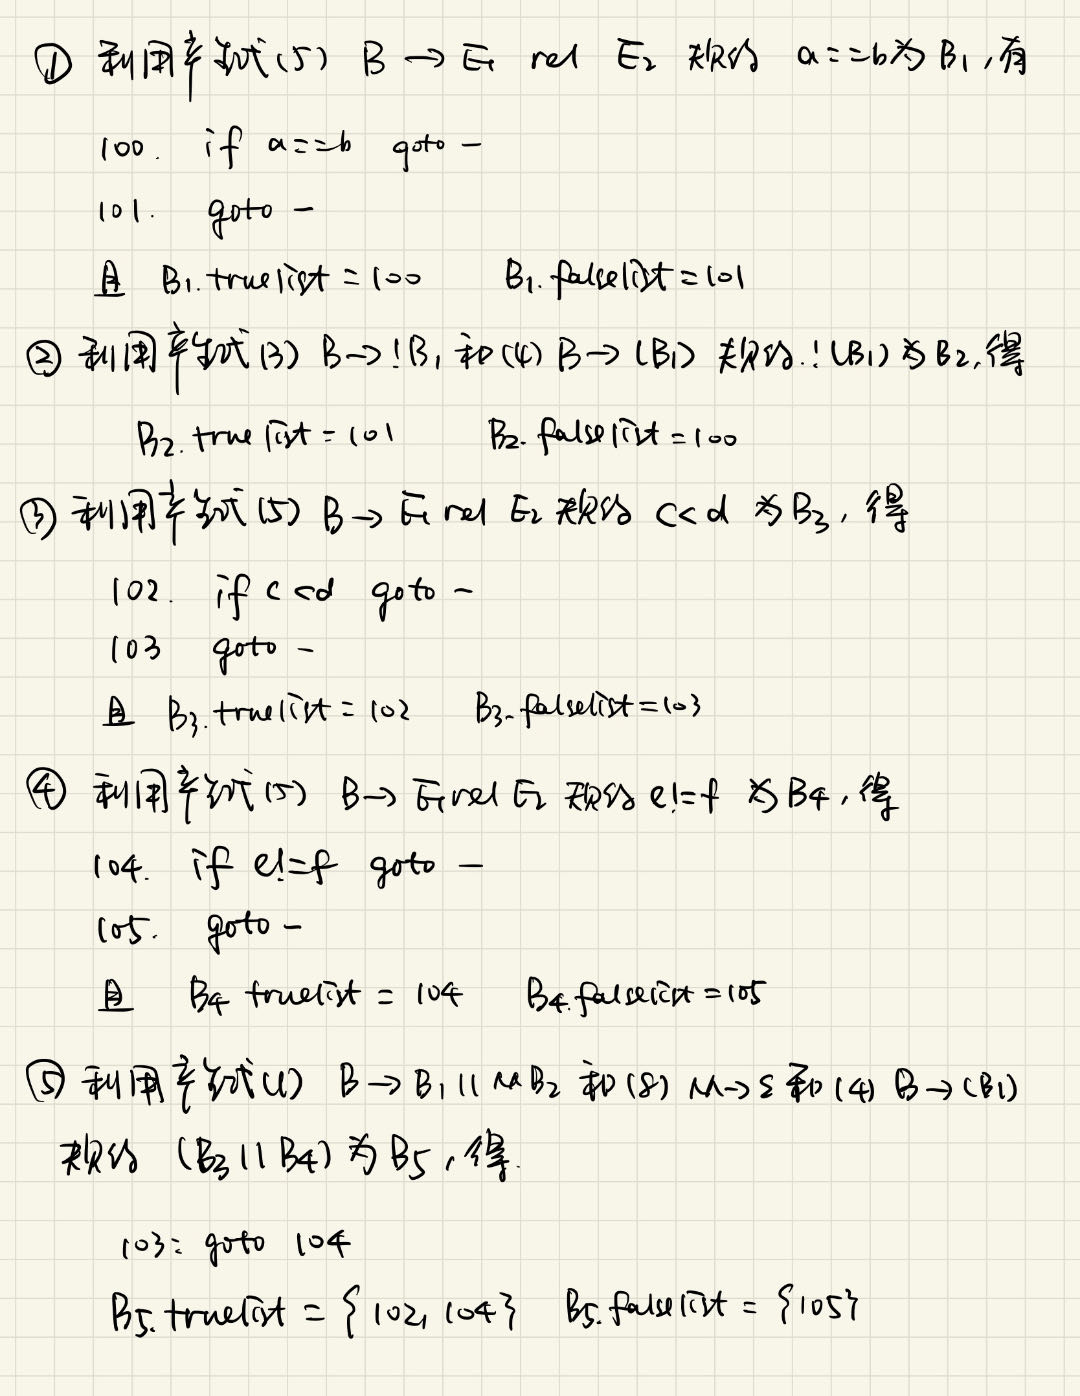 ① 利用产生式(5) B → E₁ rel E₂ 规约 a==b为 B₁,有
100. if a==b goto -
101. goto -
且 B₁.truelist = 100 B₁.falselist = 101
② 利用产生式(3) B→!B₁ 和(4) B→(B₁) 规约.!(B₁)为B₂,得
B₂.truelist = 101 B₂.falselist = 100
③ 利用产生式(5) B→ E₁ rel E₂ 规约 c<d 为B₃,得
102. if c<d goto -
103 goto -
且 B₃.truelist = 102 B₃.falselist = 103
④ 利用产生式(5) B→ E₁ rel E₂ 规约 e!=f 为B₄,得
104. if e!=f goto -
105. goto -
且 B₄ truelist = 104 B₄.falselist = 105
⑤ 利用产生式(1) B→B₁||MB₂ 和(8) M→ε 和(4) B→(B₁)
规约 (B₃||B₄)为B₅,得.
103: goto 104
B₅.truelist = {102, 104} B₅.falselist = {105}